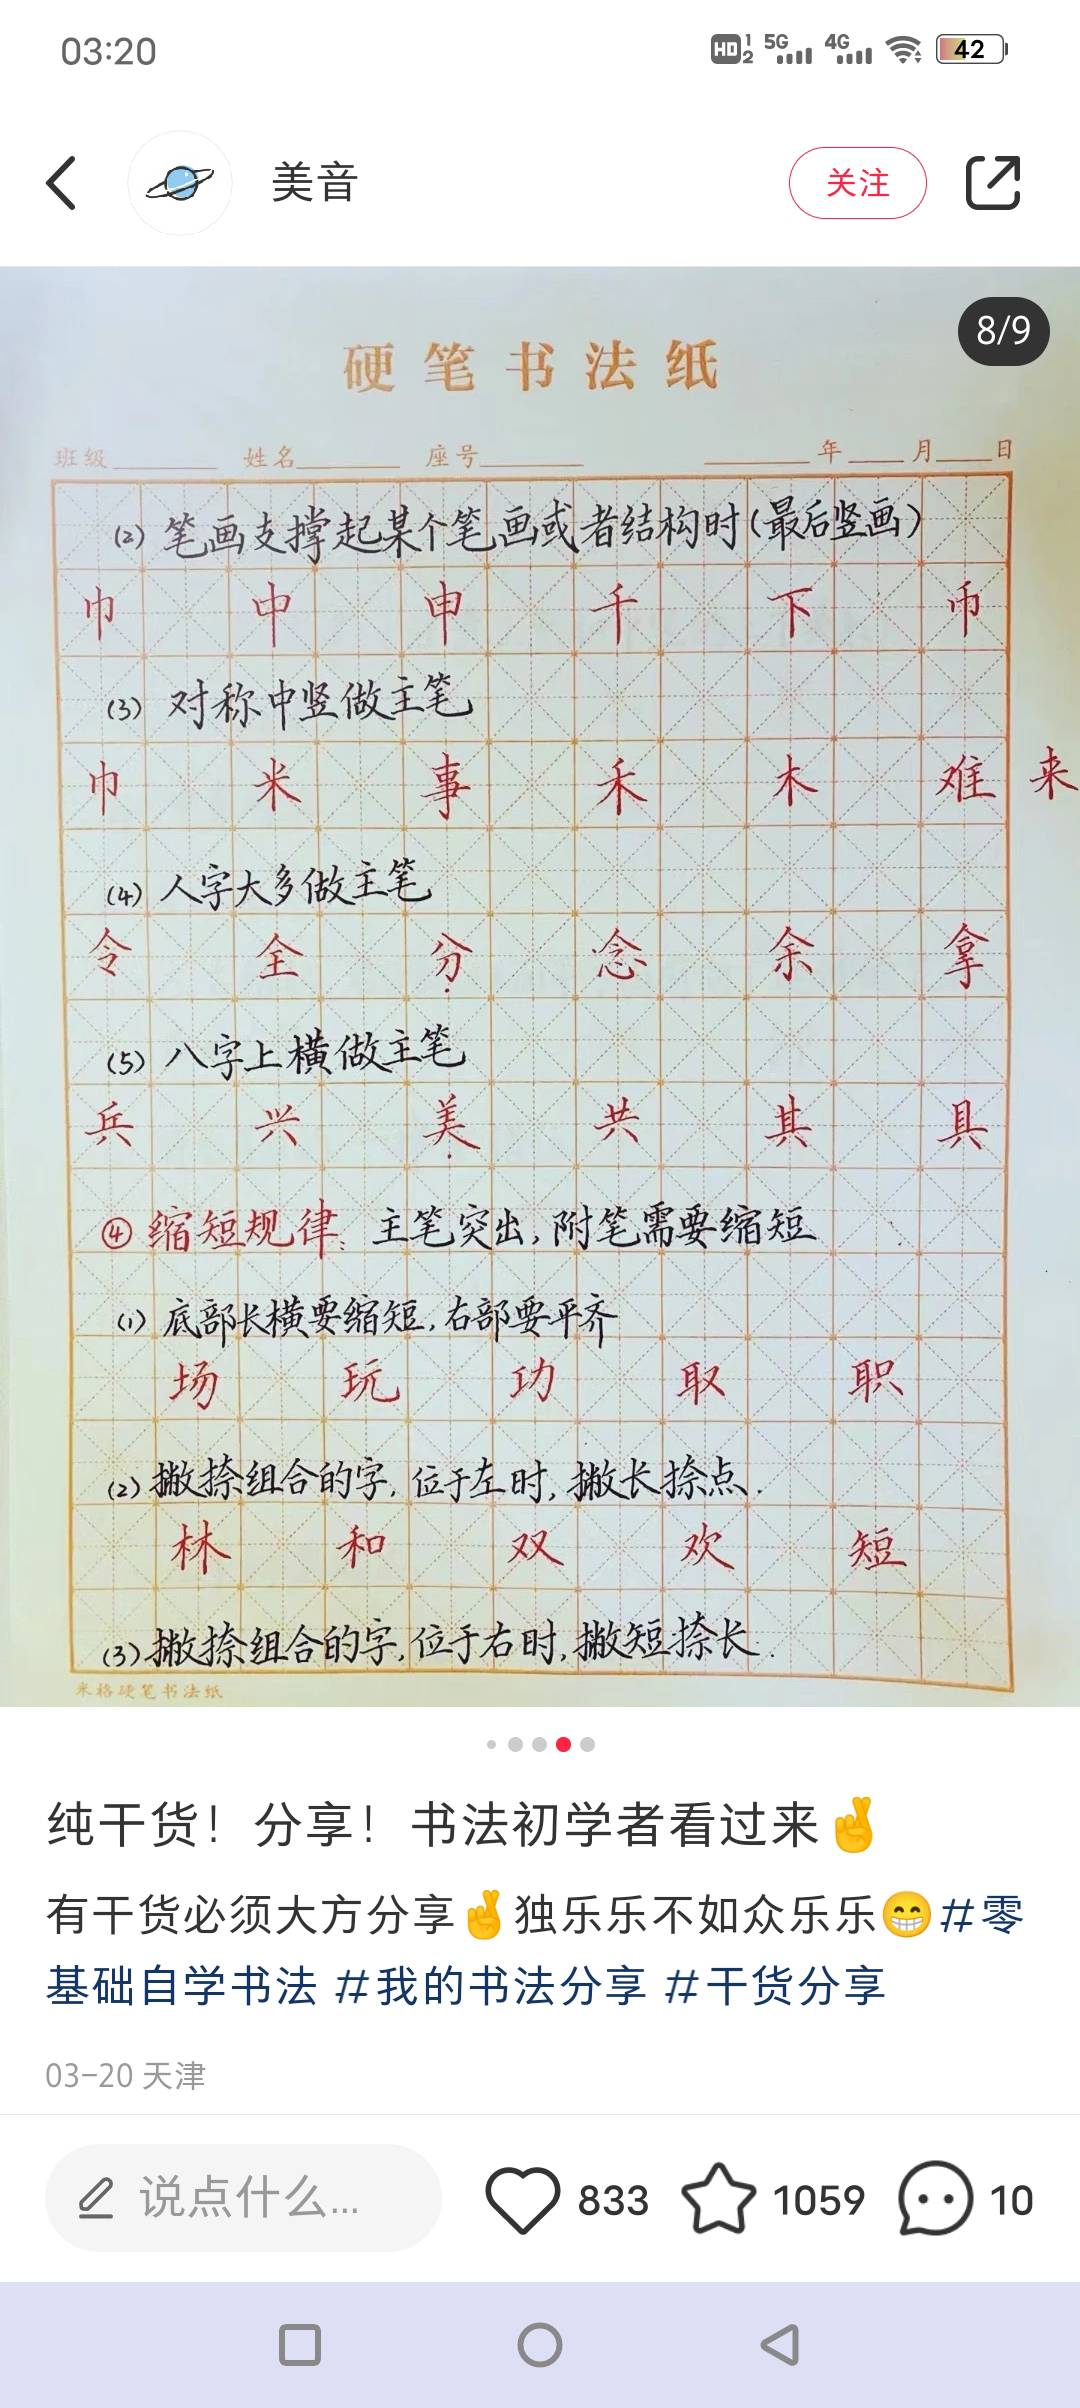 03:20
HD 1 2 5G 4G 42
美音
关注
8/9
硬笔书法纸
班级 姓名 座号 年 月 日
(2) 笔画支撑起某个笔画或者结构时(最后竖画)
巾 中 申 千 下 币
(3) 对称中竖做主笔
巾 米 事 禾 木 难 来
(4) 人字大多做主笔
令 全 分 念 余 拿
(5) 八字上横做主笔
兵 兴 美 共 其 具
④ 缩短规律: 主笔突出,附笔需要缩短
(1) 底部长横要缩短,右部要平齐
场 玩 功 取 职
(2) 撇捺组合的字,位于左时,撇长捺点.
林 和 双 欢 短
(3) 撇捺组合的字,位于右时,撇短捺长.
米格硬笔书法纸
纯干货！分享！书法初学者看过来🤞
有干货必须大方分享🤞独乐乐不如众乐乐😁#零
基础自学书法 #我的书法分享 #干货分享
03-20 天津
说点什么...
833
1059
10